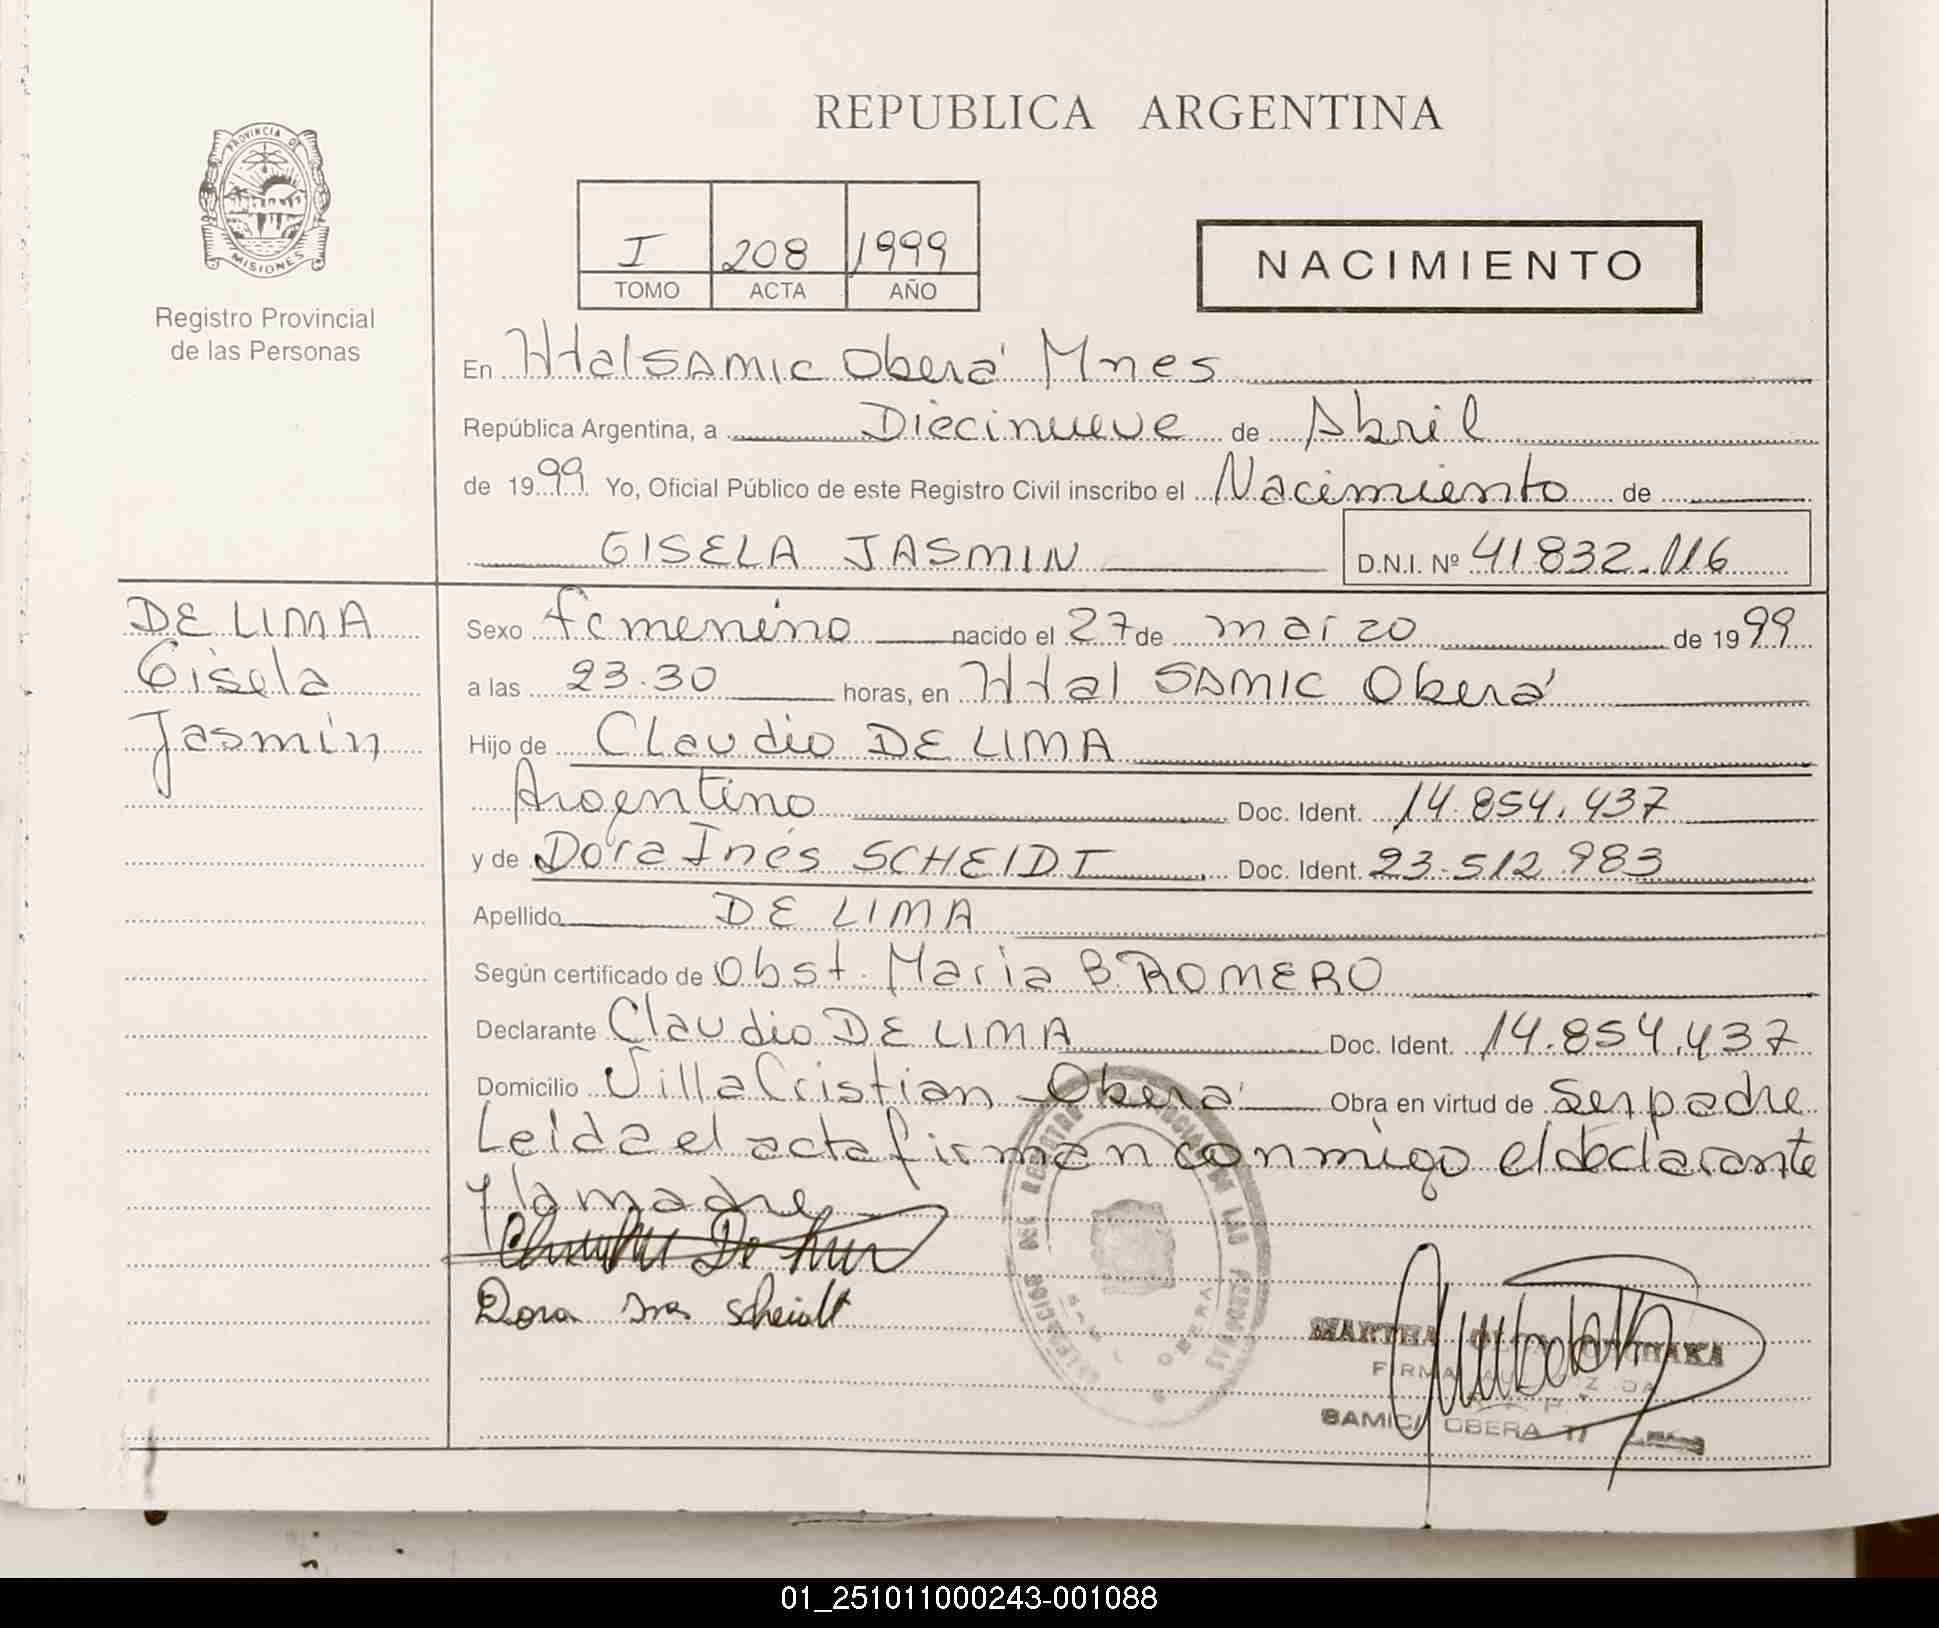 REPUBLICA ARGENTINA
PROVINCIA DE
MISIONES
Registro Provincial
de las Personas
I 208 1999
TOMO ACTA AÑO
NACIMIENTO
En Htal SAMIC Oberá Mnes
República Argentina, a Diecinueve de Abril
de 1999 Yo, Oficial Público de este Registro Civil inscribo el Nacimiento de
GISELA JASMIN D.N.I. Nº 41832.116
DE LIMA
Gisela
Jasmin
Sexo femenino nacido el 27 de marzo de 1999
a las 23.30 horas, en Htal SAMIC Oberá
Hijo de Claudio DE LIMA
Argentino Doc. Ident. 14.854.437
y de Dora Inés SCHEIDT Doc. Ident. 23.512.983
Apellido DE LIMA
Según certificado de Obst. Maria B. ROMERO
Declarante Claudio DE LIMA Doc. Ident. 14.854.437
Domicilio Villa Cristian Oberá Obra en virtud de ser padre
Leida el acta firman conmigo el declarante
y la madre
Dora Ines Scheidt
MARTHA
FIRMA
SAMIC OBERA
01_251011000243-001088